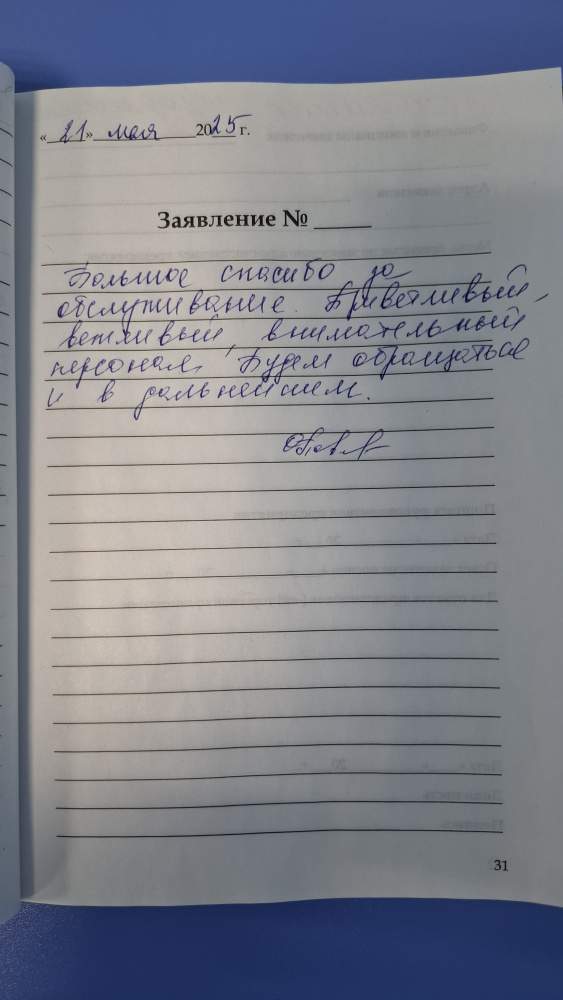 «21» мая 2025 г.
Заявление №
Большое спасибо за
обслуживание. Приветливый,
вежливый, внимательный
персонал. Будем обращаться
и в дальнейшем.
31